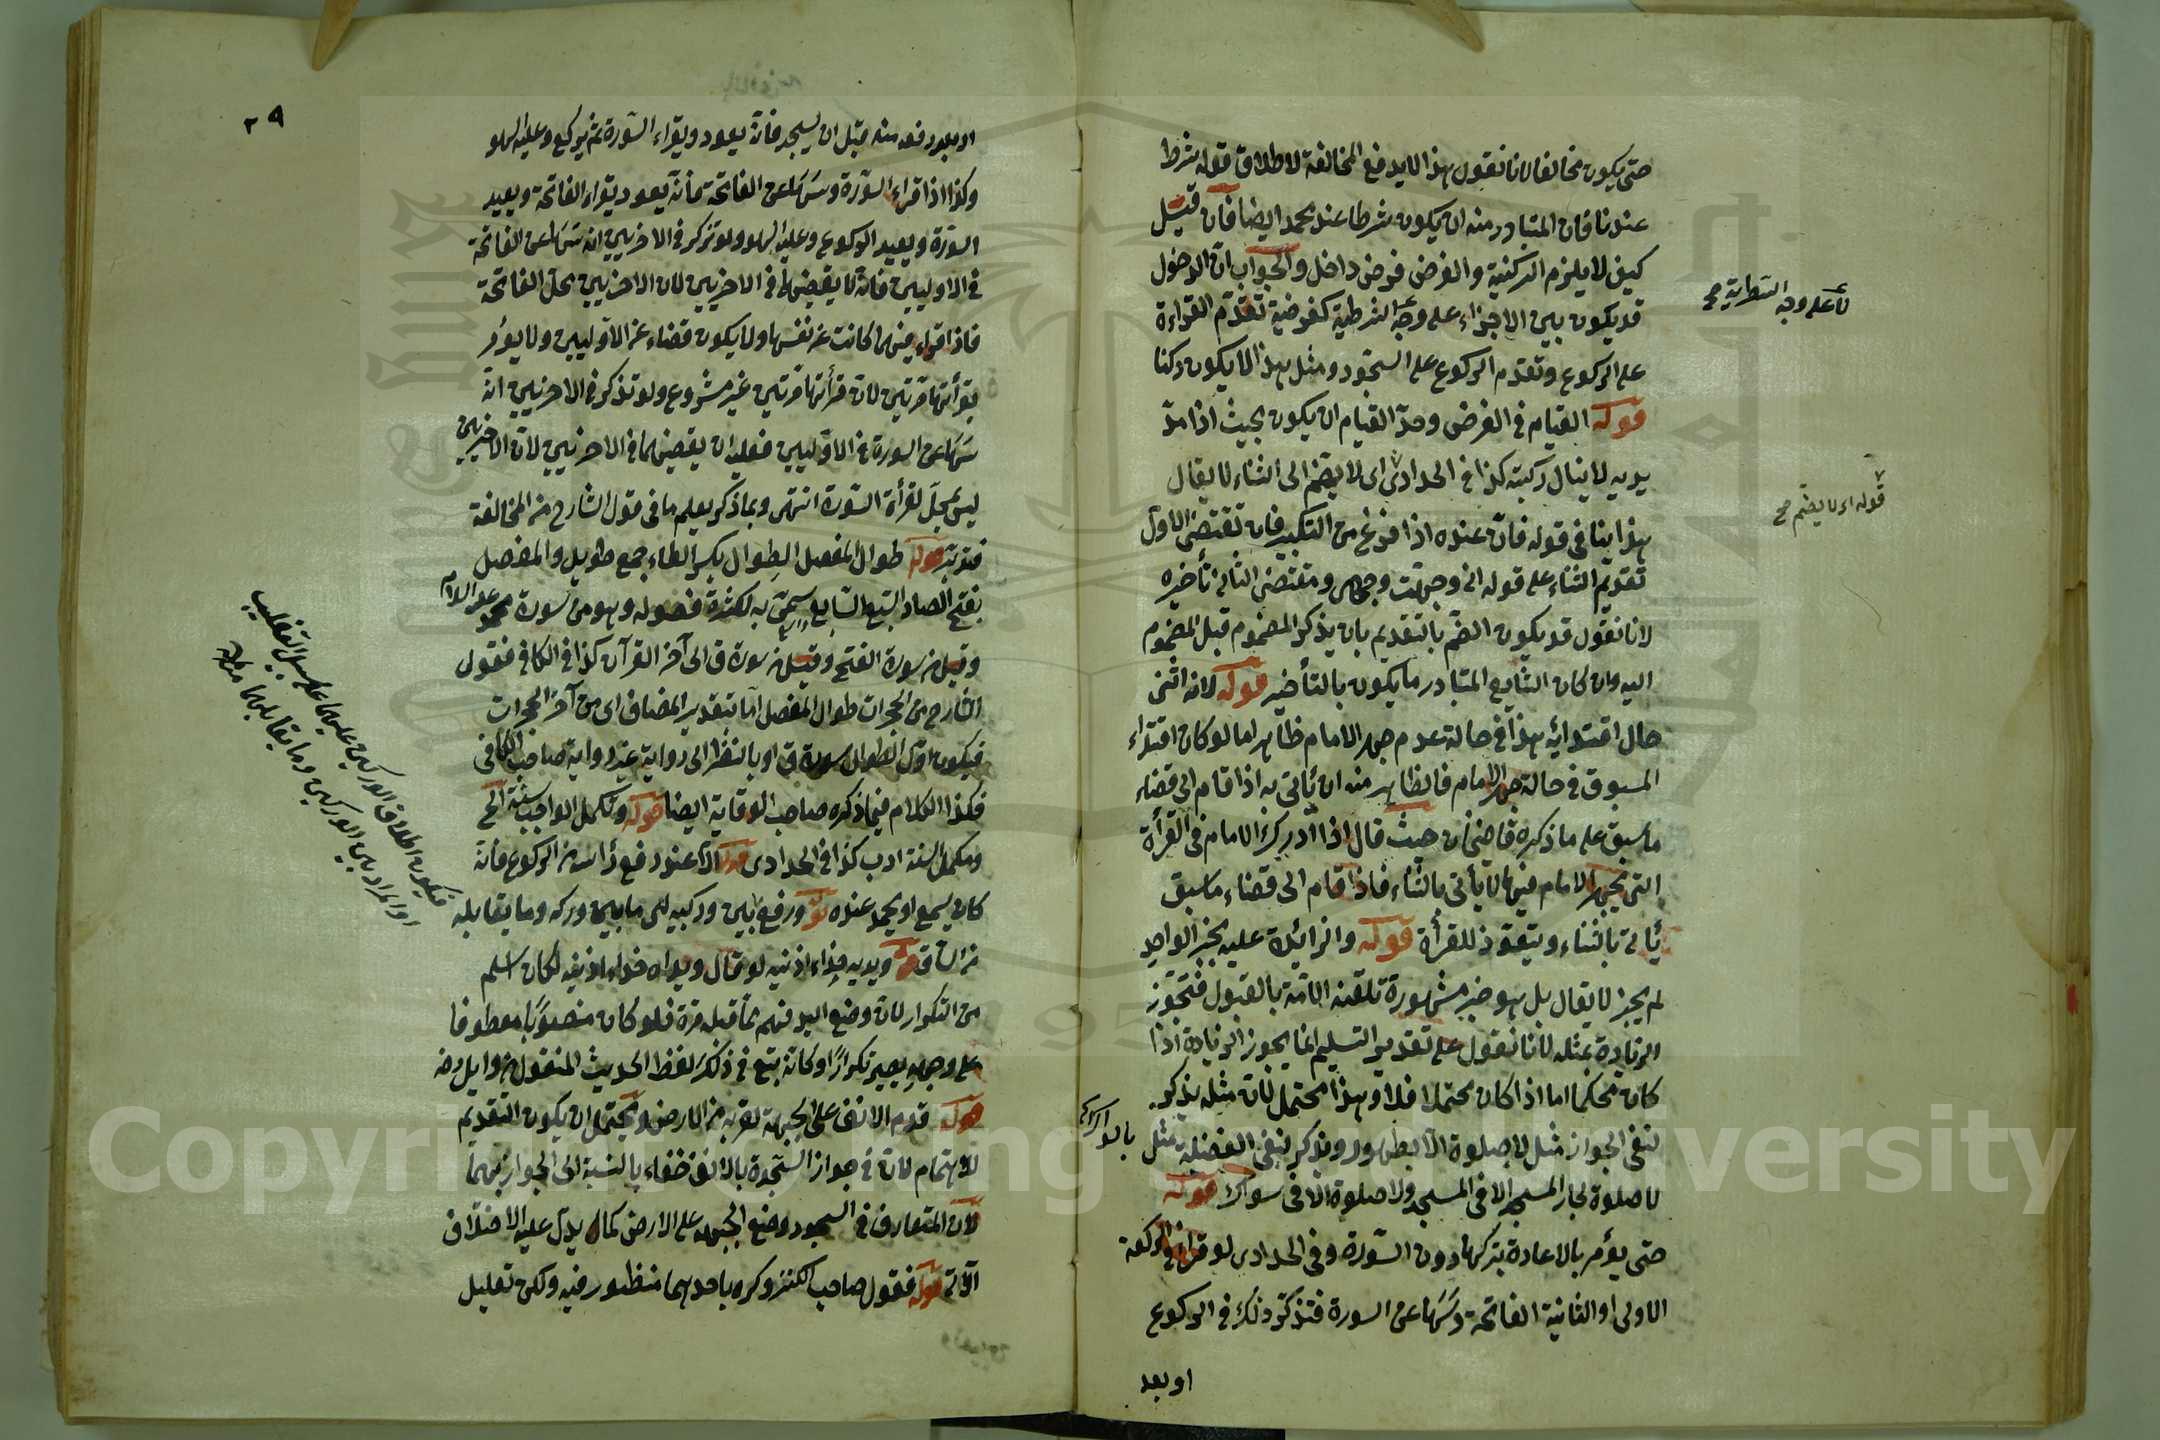 حتى يكون مخالفا لانا نقول هذا لا يدفع المخالفة لاطلاق قوله شرط
عندنا فان المتبادر منه ان يكون شرطا عند محمد ايضا فان قيل
كيف لا يلزم الركنية والفرض فرض داخل والجواب ان الدخول
قد يكون بين الاجزاء على وجه الشرطية كفرضية تقدم القراءة
على الركوع وتقدم الركوع على السجود ومثل هذا لا يكون ركنا
قوله القيام في الفرض وحد القيام ان يكون بحيث اذا مد
يديه لا ينال ركبته كذا في الحدادى اى لا يضم الى الثناء لا يقال
هذا ينافى قوله فان عنده اذا فرغ من التكبير فان تقتضى الاول
تقديم الثناء على قوله انى وجهت وجهى ومقتضى الثانى تأخيره
لانا نقول قد يكون الضم بالتقديم بان يذكر المضموم قبل المضموم
اليه وان كان الشايع المتبادر ما يكون بالتأخير قوله لانه اثنى
حال اقتدائه هذا فى حالة عدم جهر الامام ظاهر اما لو كان اقتداء
المسبوق فى حالة جهر الامام فالظاهر منه ان يأتى به اذا قام الى قضاء
ما سبق على ما ذكره قاضيخان حيث قال اذا ادرك الامام فى القرأة
التى يجهر الامام فيها لا يأتى بالثناء فاذا قام الى قضاء ما سبق
يأتى بالثناء ويتعوذ للقرأة قوله والزائدة عليه بخبر الواحد
لم يجز لا يقال بل هو خبر مشهورة تلقته الامة بالقبول فتجوز
الزيادة بمثله لانا نقول على تقدير التسليم انما يجوز الزيادة اذا
كان محكما اما اذا كان محتملا فلا وهذا محتمل لان مثله يذكر
لنفى الجواز مثل لا صلوة الا بطهور ويذكر لنفى الفضيلة مثل
لا صلوة لجار المسجد الا فى المسجد ولا صلوة الا فى سواك قوله
حتى يؤمر بالاعادة بتركها دون السورة وفى الحدادى لو قرأ فى الركعة
الاولى او الثانية الفاتحة وسها عن السورة فتذكر ذلك فى الركوع
او بعد
لا على وجه الشطرية صح
قوله اى لا يضم صح
٢٩
او بعد رفعه منه قبل ان يسجد فانه يعود ويقراء السورة ثم يركع وعليه السهو
وكذا اذا قراء السورة وسها عن الفاتحة فانه يعود يقراء الفاتحة ويعيد
السورة ويعيد الركوع وعليه السهو ولو تذكر فى الاخريين انه سها عن الفاتحة
فى الاوليين فانه لا يقضيها فى الاخريين لان الاخريين محل الفاتحة
فاذا قراء فيهما كانت عن نفسها ولا يكون قضاء عن الاوليين ولا يؤمر
بقرأتها مرتين لان قرأتها مرتين غير مشروع ولو تذكر فى الاخريين انه
سها عن السورة فى الاوليين فعليه ان يقضيها فى الاخريين لان الاخريين
ليس بمحل لقرأة السورة انتهى وبما ذكر يعلم ما فى قول الشارح من المخالفة
فتدبر قوله طوال المفصل الطوال بكسر الطاء جمع طويل والمفصل
بفتح الصاد السبع السابع سمى به لكثرة فصوله وهو من سورة محمد عليه السلام
وقيل من سورة الفتح وقيل من سورة ق الى آخر القرآن كذا فى الكافى فقول
الشارح من الحجرات طوال المفصل اما بتقدير المضاف اى من آخر الحجرات
فيكون اول الطوال سورة ق او بالنظر الى رواية غير رواية صاحب الكافى
فكذا الكلام فيما ذكره صاحب الوقاية ايضا قوله ومكمل الواجب سنة الخ
ومكمل السنة ادب كذا فى الحدادى قوله الا عند رفع رأسه من الركوع فانه
كان يسمع او يحمد عنده قوله ورفع بين وركيه اى ما بين وركه وما يقابله
من الساق قوله ويديه حذاء اذنيه لو قال ويداه حذاء اذنيه لكان اسلم
من التكرار لان وضع اليد فهم مما قبله مرة فلو كان منصوبا معطوفا
على وجهه يصير تكرارا وكانه تبع فى ذلك لفظ الحديث المنقول من وايل رضه
قوله قدم الانف على الجبهة لقربه من الارض ويحتمل ان يكون التقديم
للاهتمام لان فى جواز السجدة بالانف خفاء بالنسبة الى الجواز بهما
لان المتعارف فى السجود وضع الجبهة على الارض كما يدل عليه الاختلاف
الاتى قوله فقول صاحب الكنز وكره باحدهما منظور فيه ولكن تعليل
فيكون اطلاق الوركين عليهما على سبيل التغليب
او المراد بين الوركين وما يقابلهما
Copyright © King Saud University